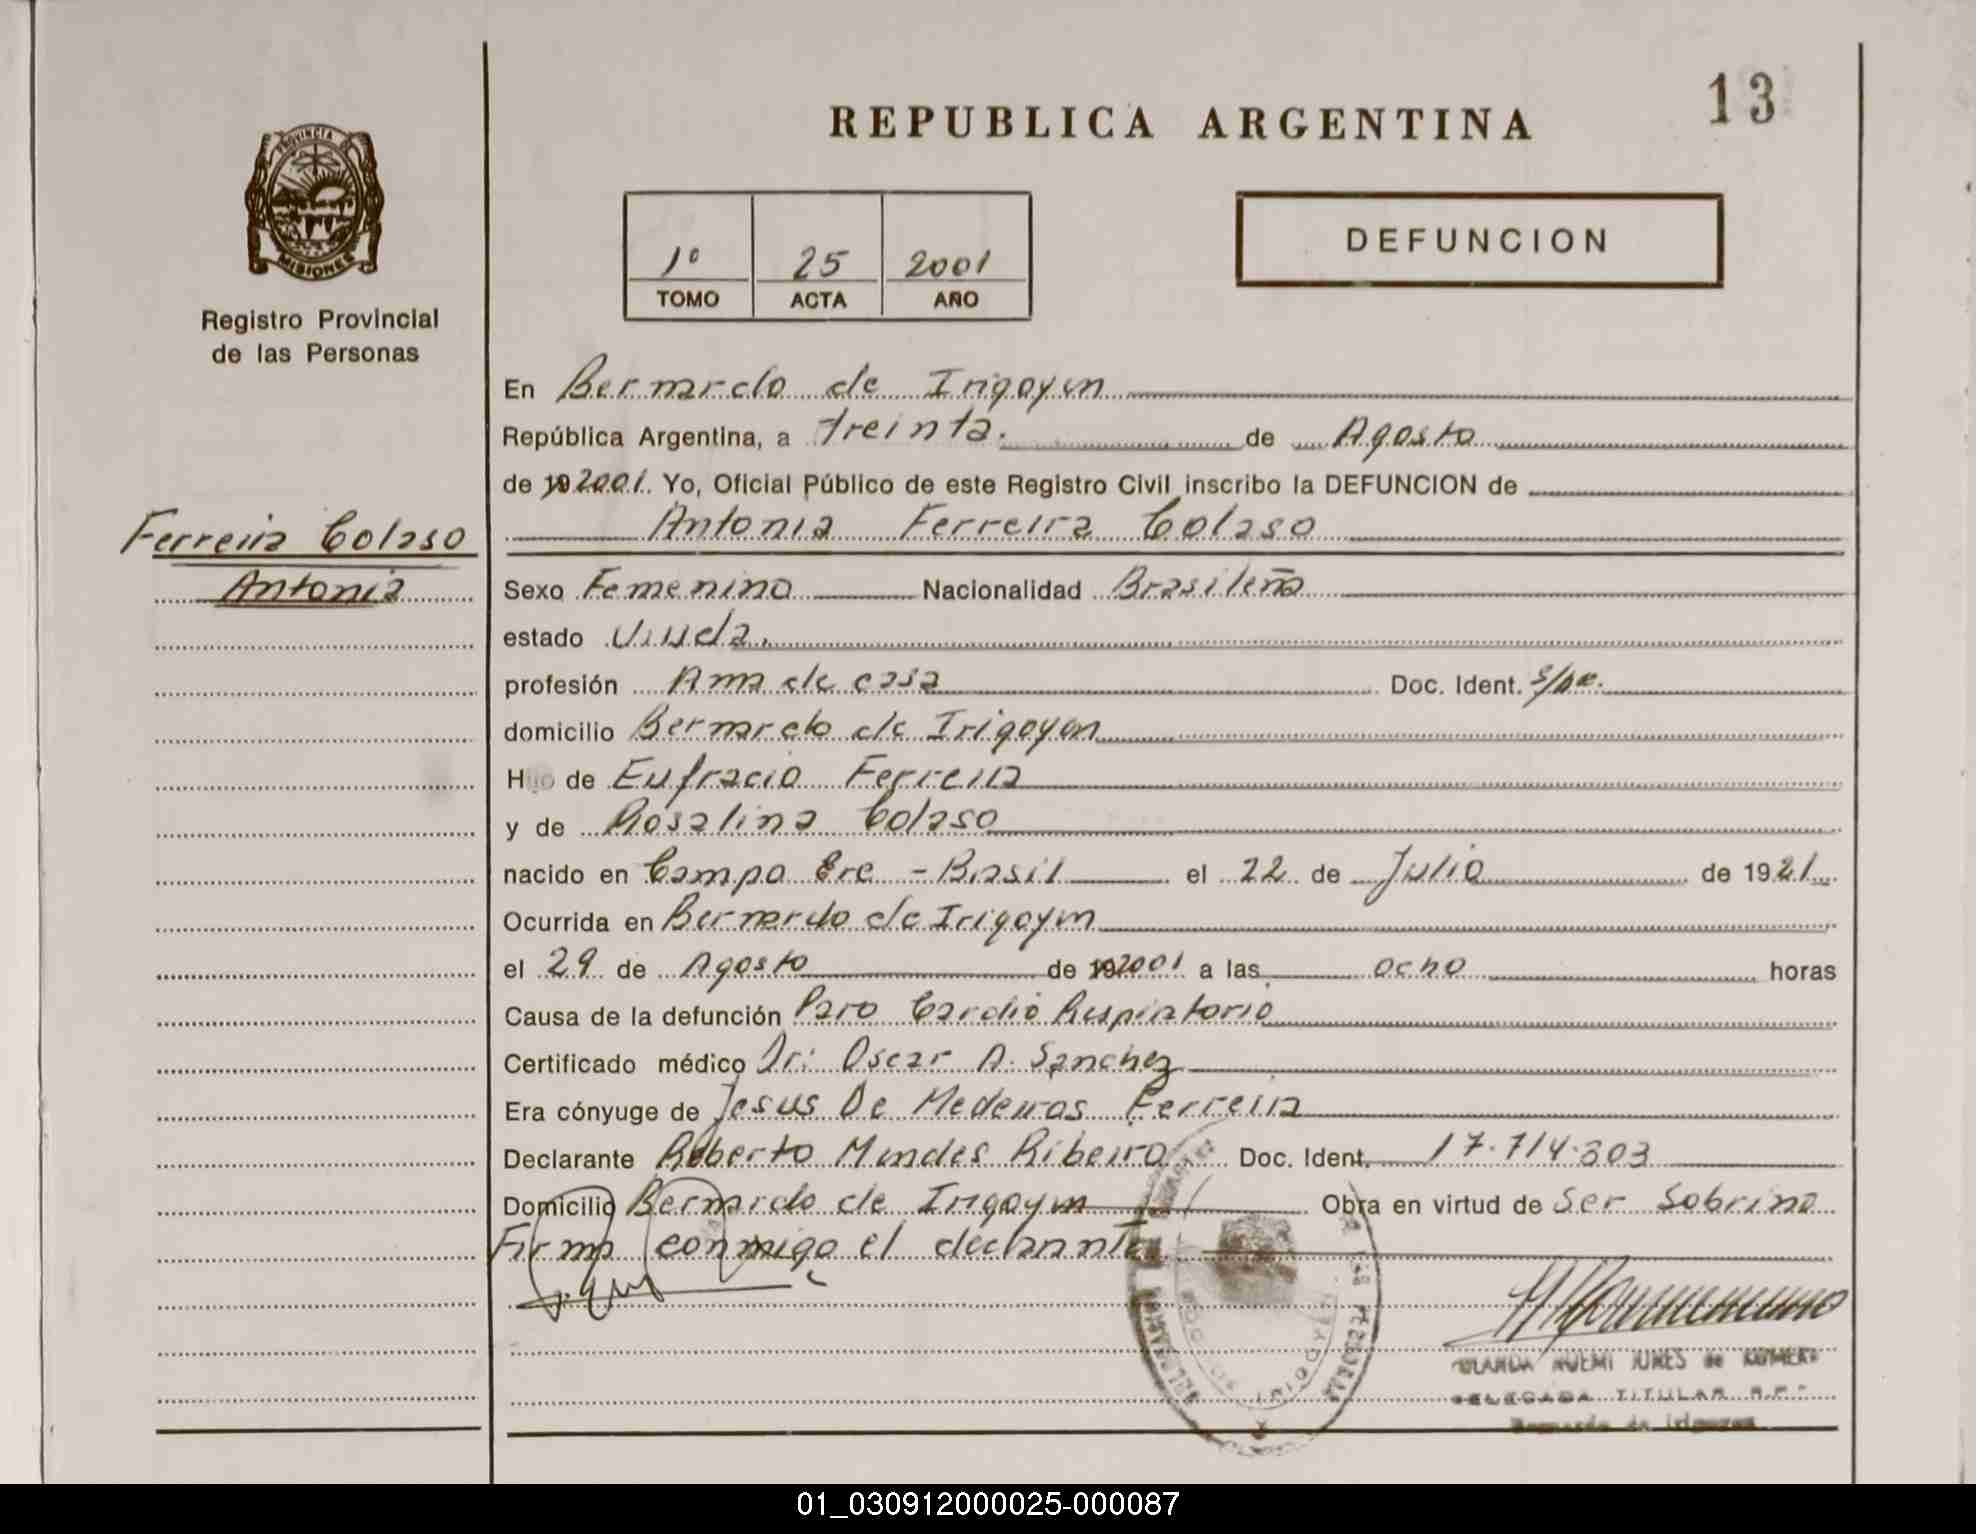 13
REPUBLICA ARGENTINA
PROVINCIA DE
MISIONES
Registro Provincial
de las Personas
1º 25 2001
TOMO ACTA AÑO
DEFUNCION
En Bernardo de Irigoyen
República Argentina, a treinta. de Agosto
de 19 2001. Yo, Oficial Público de este Registro Civil inscribo la DEFUNCION de
Antonia Ferreira Colaso
Ferreira Colaso
Antonia
Sexo Femenino Nacionalidad Brasileña
estado Viuda.
profesión Ama de casa Doc. Ident.
domicilio Bernardo de Irigoyen
H de Eufracio Ferreira
y de Rosalina Colaso
nacido en Campo Ere - Brasil el 22 de Julio de 1921
Ocurrida en Bernardo de Irigoyen
el 29 de Agosto de 19 2001 a las ocho horas
Causa de la defunción Paro Cardio Respiratorio
Certificado médico Dr: Oscar A. Sanchez
Era cónyuge de Jesus De Medeiros Ferreira
Declarante Roberto Mendes Ribeiro Doc. Ident. 17.714.303
Domicilio Bernardo de Irigoyen Obra en virtud de Ser Sobrino
Firma conmigo el declarante
NOEMI JUNES de
DELEGADA TITULAR R.P.
Bernardo de Irigoyen
01_030912000025-000087